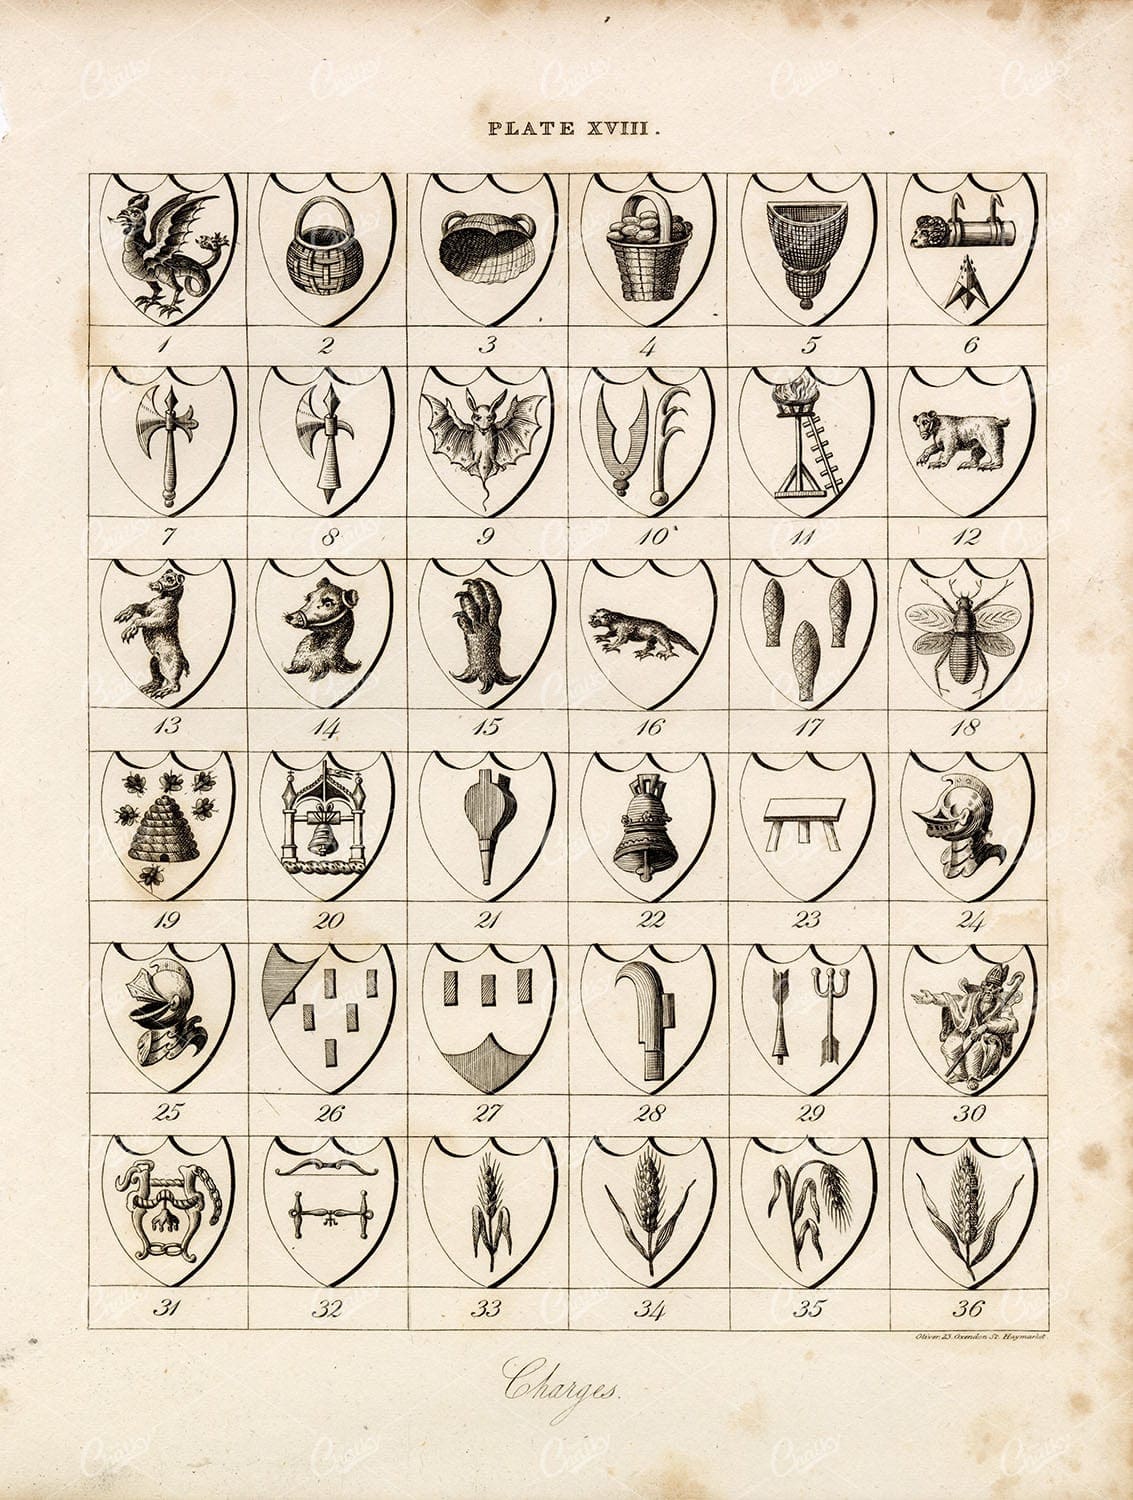 PLATE XVIII.
1 2 3 4 5 6
7 8 9 10 11 12
13 14 15 16 17 18
19 20 21 22 23 24
25 26 27 28 29 30
31 32 33 34 35 36
Oliver. 23. Oxendon St. Haymarket
Charges.